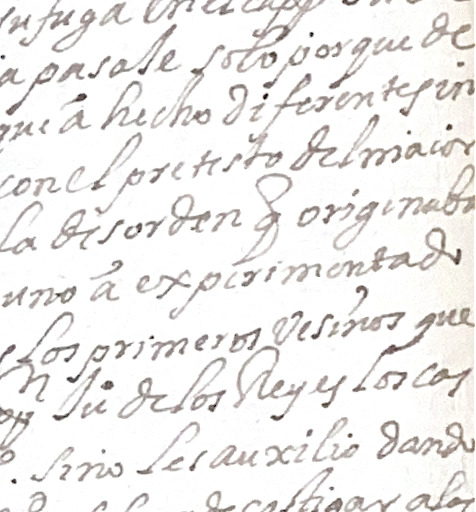 su fuga
a pasase solo porque de
que â hecho diferentes in
con el pretesto del maior
la disorden q originaba
uno â experimentado
los primeros Vesinos que
de los Reyes los cas
sino les auxilio dando
de castigar a los